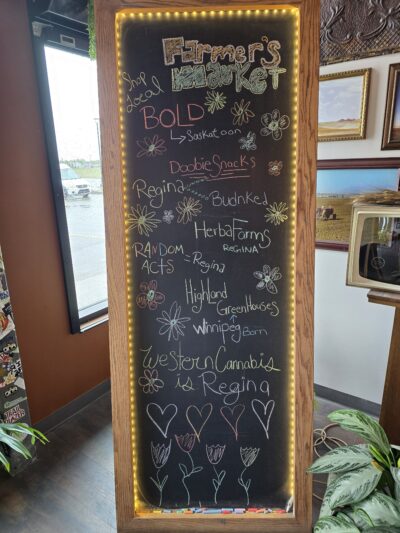 Farmer's
Market
Shop
Local
BOLD
Saskatoon
Doobie Snacks
Regina
Budnked
HerbaFarms
REGINA
RANDOM
ACTS = Regina
Highland
GreenHouses
Winnipeg Born
Western Cannabis
is Regina